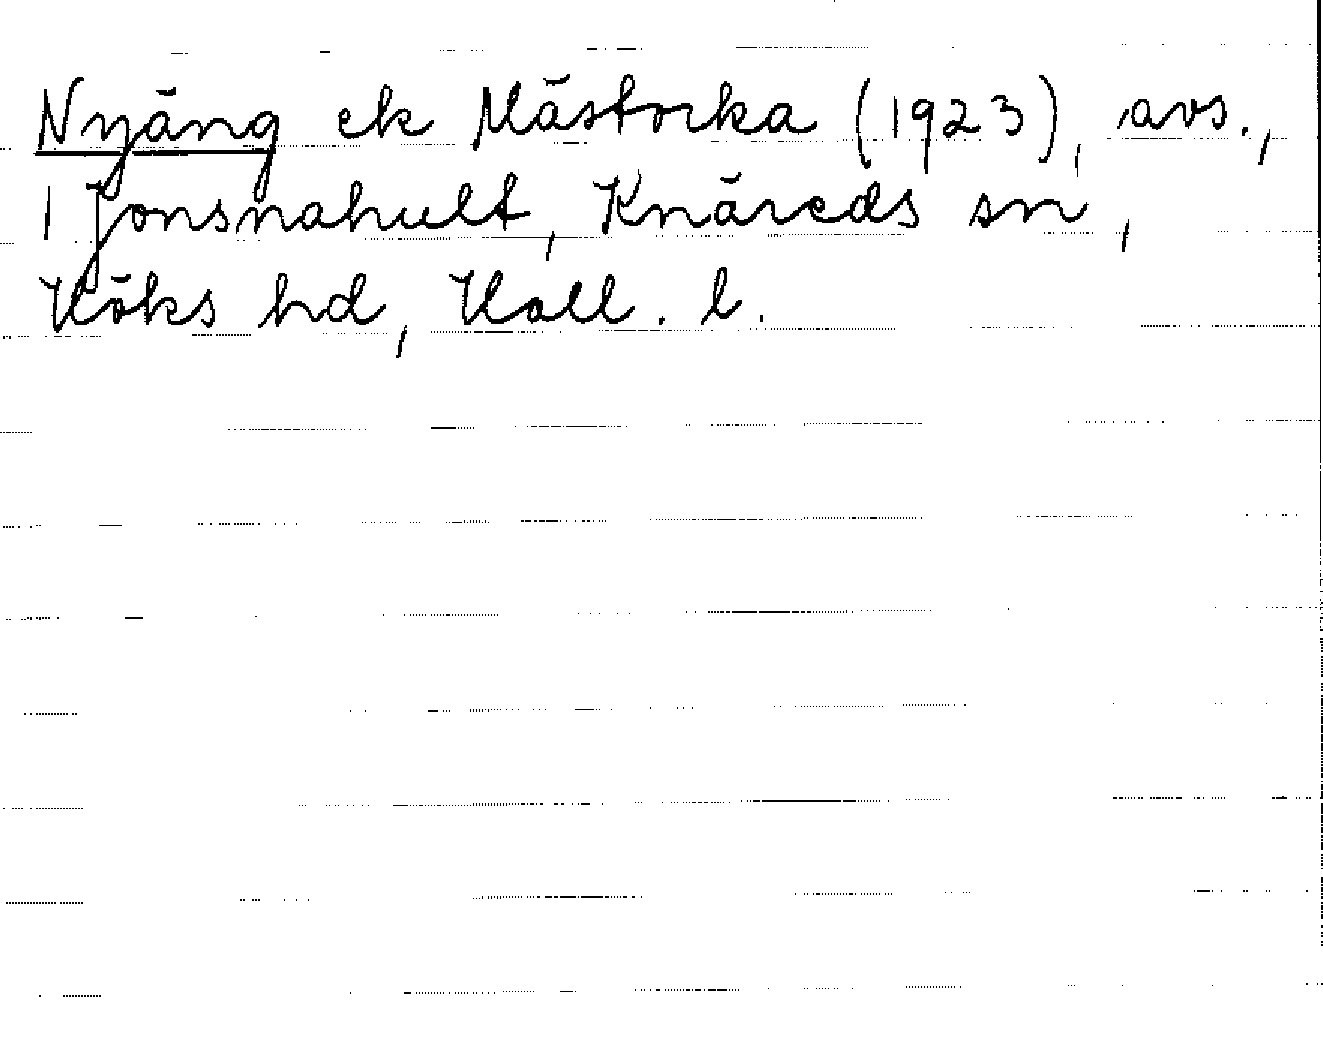 Nyäng ek Mästocka (1923), avs.,
1 Jonsnahult, Knäreds sn,
Höks hd, Hall. l.